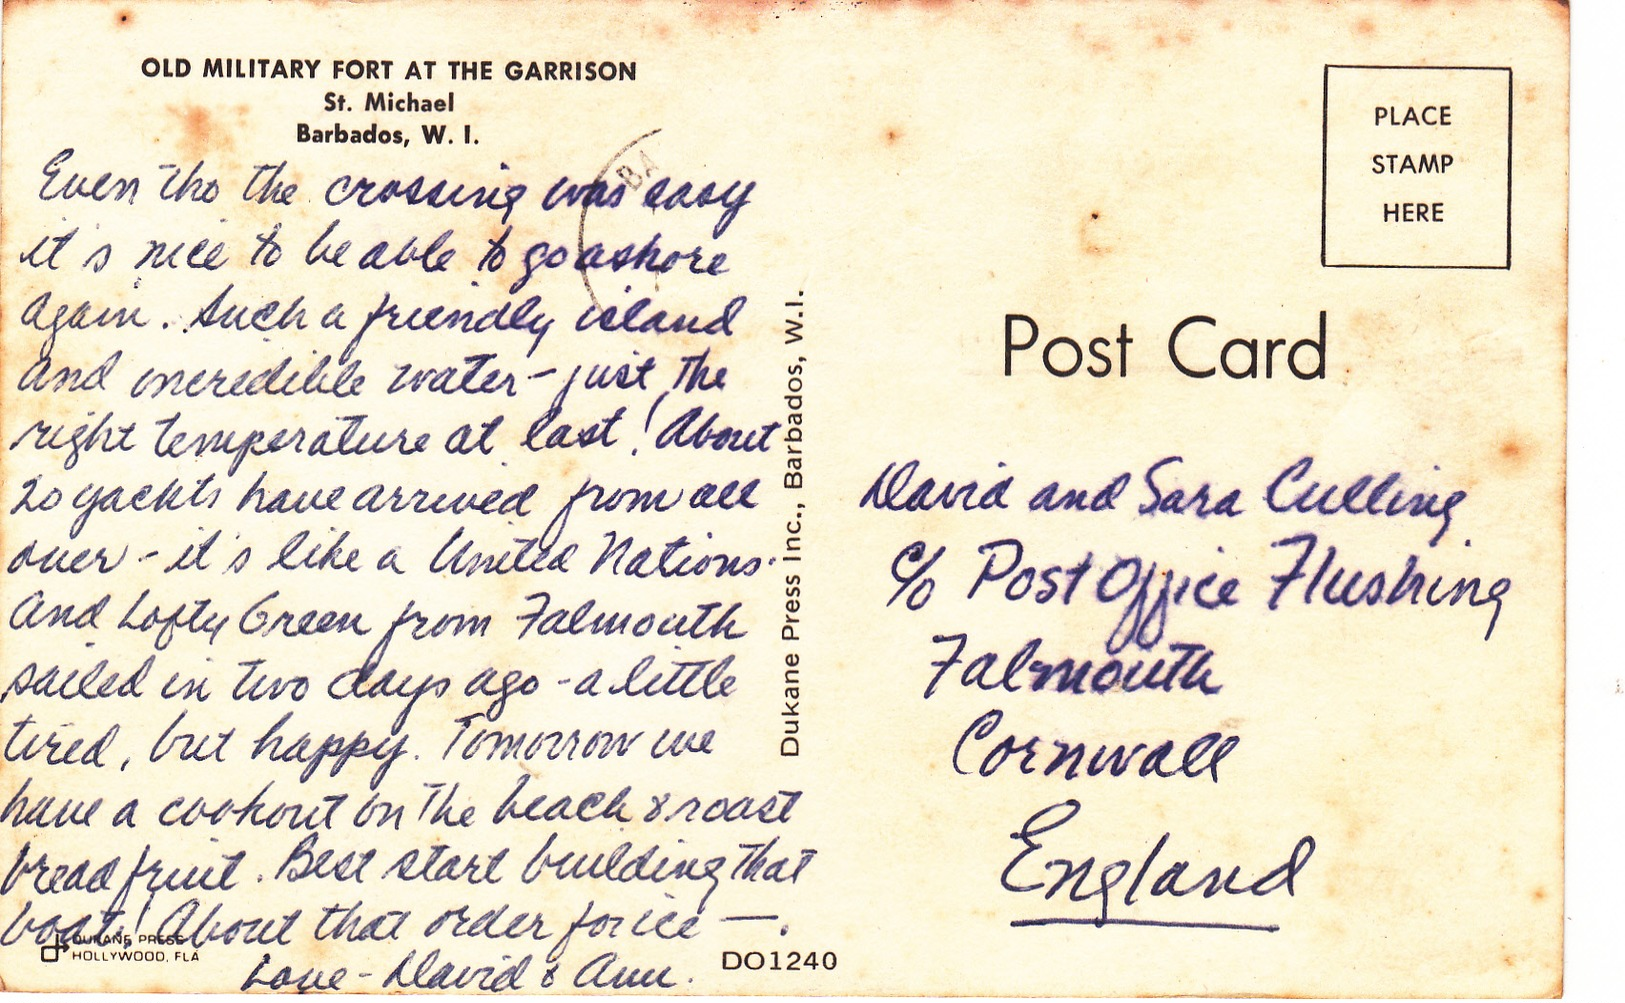 OLD MILITARY FORT AT THE GARRISON
St. Michael
Barbados, W. I.
Even tho the crossing was easy
it's nice to be able to go ashore
again. Such a friendly island
and incredible water - just the
right temperature at last! About
20 yachts have arrived from all
over - it's like a United Nations.
And Lofty Green from Falmouth
sailed in two days ago - a little
tired, but happy. Tomorrow we
have a cookout on the beach & roast
breadfruit. Best start building that
boat! About that order for ice —.
Love - David & Ann.
DUKANE PRESS
HOLLYWOOD, FLA
DO1240
Dukane Press Inc., Barbados, W.I.
BA
PLACE
STAMP
HERE
Post Card
David and Sara Culling
c/o Post Office Flushing
Falmouth
Cornwall
England